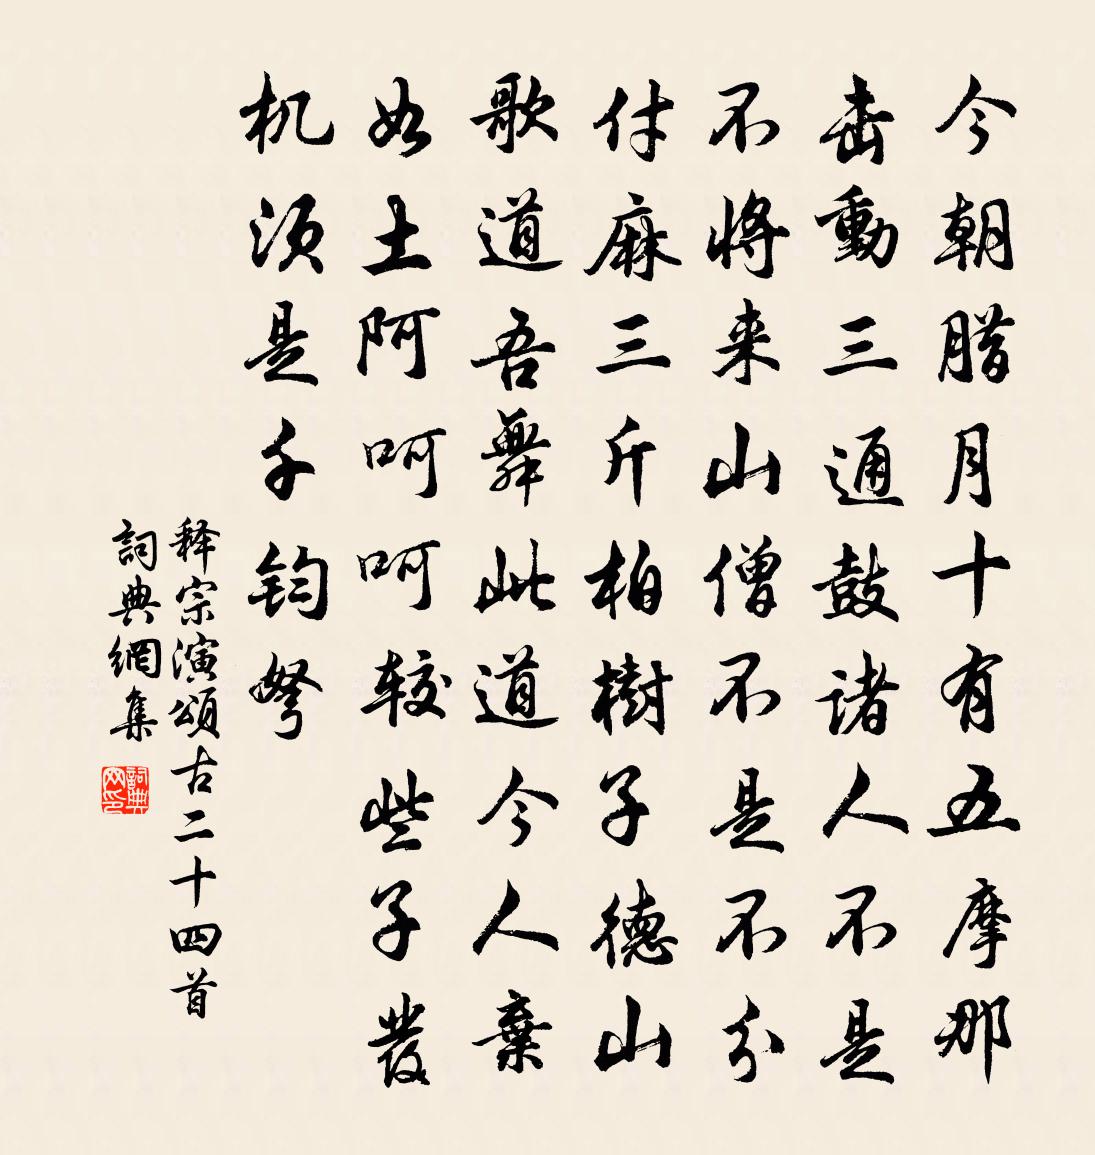 今朝腊月十有五摩那
击動三通鼓诸人不是
不将来山僧不是不分
付麻三斤柏樹子德山
歌道吾舞此道今人棄
如土阿呵呵较些子發
机须是千鈞弩
释宗演頌古二十四首
詞典網集
詞典网印